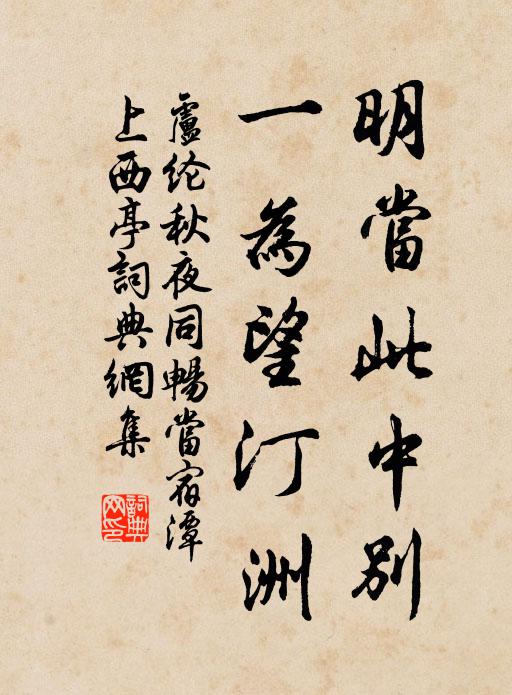 明當此中別
一為望汀洲
盧纶秋夜同暢當宿潭
上西亭詞典網集
詞典
网印